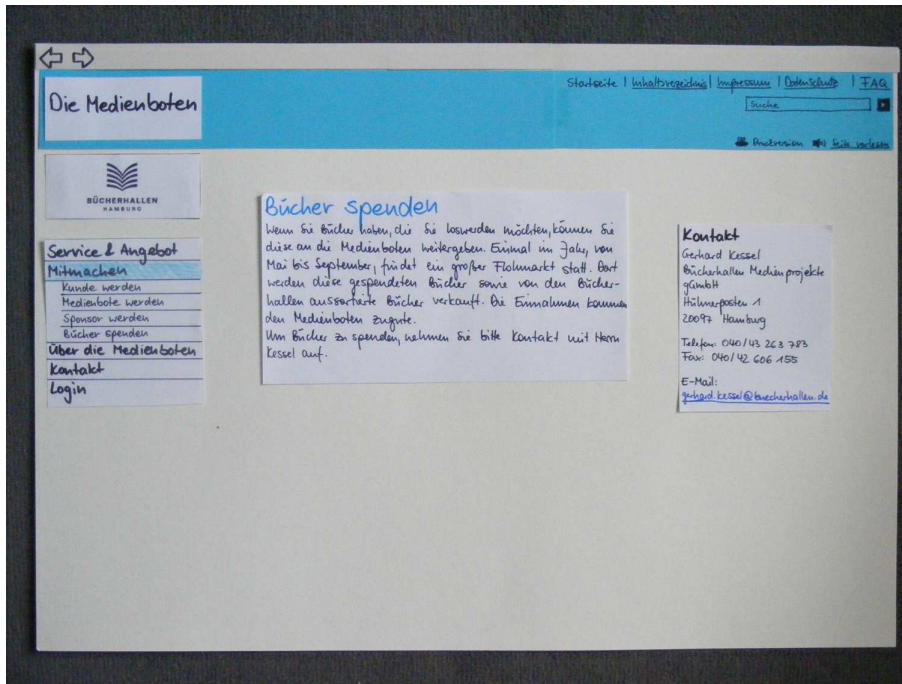 Die Medienboten
Startseite | Inhaltsverzeichnis | Impressum | Datenschutz | FAQ
Suche
Druckversion Seite vorlesen
BÜCHERHALLEN
HAMBURG
Service & Angebot
Mitmachen
Kunde werden
Medienbote werden
Sponsor werden
Bücher spenden
Über die Medienboten
Kontakt
Login
Bücher spenden
Wenn Sie Bücher haben, die Sie loswerden möchten, können Sie
diese an die Medienboten weitergeben. Einmal im Jahr, von
Mai bis September, findet ein großer Flohmarkt statt. Dort
werden diese gespendeten Bücher sowie von den Bücher-
hallen aussortierte Bücher verkauft. Die Einnahmen kommen
den Medienboten zugute.
Um Bücher zu spenden, nehmen Sie bitte Kontakt mit Herrn
Kessel auf.
Kontakt
Gerhard Kessel
Bücherhallen Medienprojekte
gGmbH
Hühnerposten 1
20097 Hamburg
Telefon: 040/43 263 783
Fax: 040/42 606 155
E-Mail:
gerhard.kessel@buecherhallen.de